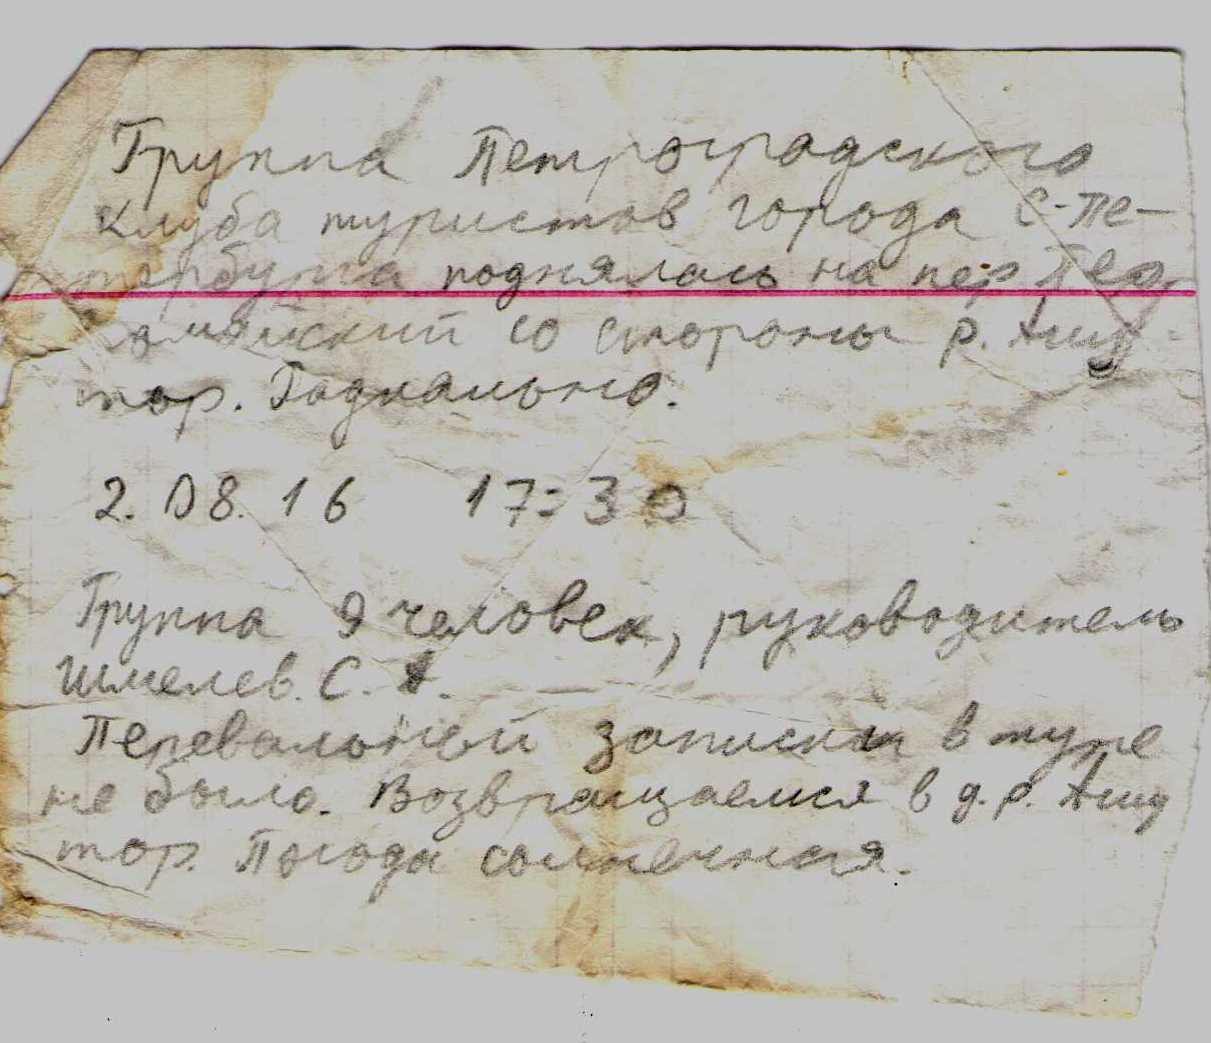 Группа Петроградского
клуба туристов города С-Пе-
тербурга поднялась на пер Пер
вомайский со стороны р. Ашу-
тор. Радиально.
2.08.16 17:30
Группа 9 человек, руководитель
Шмелев. С. А.
Перевальной записки в туре
не было. Возвращаемся в д.р. Ашу
тор. Погода солнечная.